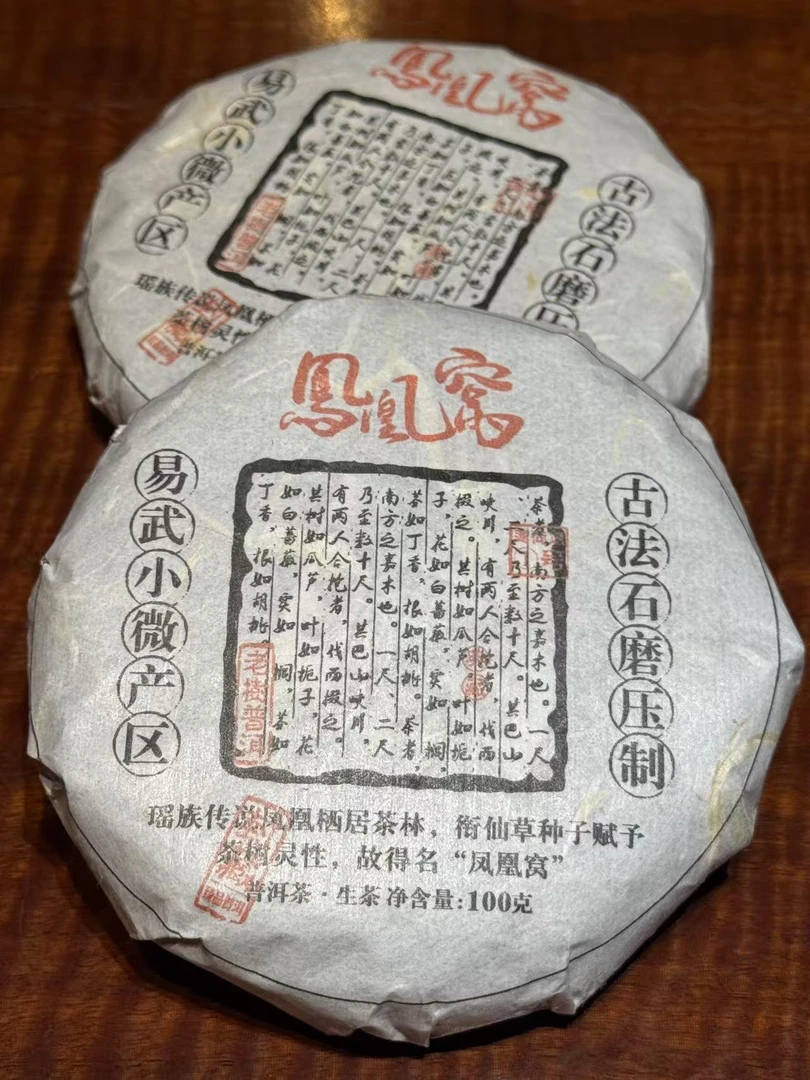 鳳凰窩
易武小微产区
古法石磨压
老樹普洱
瑶族传说凤凰栖
茶树灵性
鳳凰窩
易武小微产区
古法石磨压制
茶者，南方之嘉木也。一尺
二尺乃至数十尺。其巴山
峡川，有两人合抱者，伐而
掇之。其树如瓜芦，叶如栀
子，花如白蔷薇，实如 榈，
蒂如丁香，根如胡桃。茶者，
南方之嘉木也。一尺、二尺
乃至数十尺。其巴山峡川，
有两人合抱者，伐而掇之。
其树如瓜芦，叶如栀子，花
如白蔷薇，实如 榈，蒂如
丁香，根如胡桃。
老樹普洱
瑶族传说凤凰栖居茶林，衔仙草种子赋予
茶树灵性，故得名“凤凰窝”
普洱茶·生茶 净含量:100克